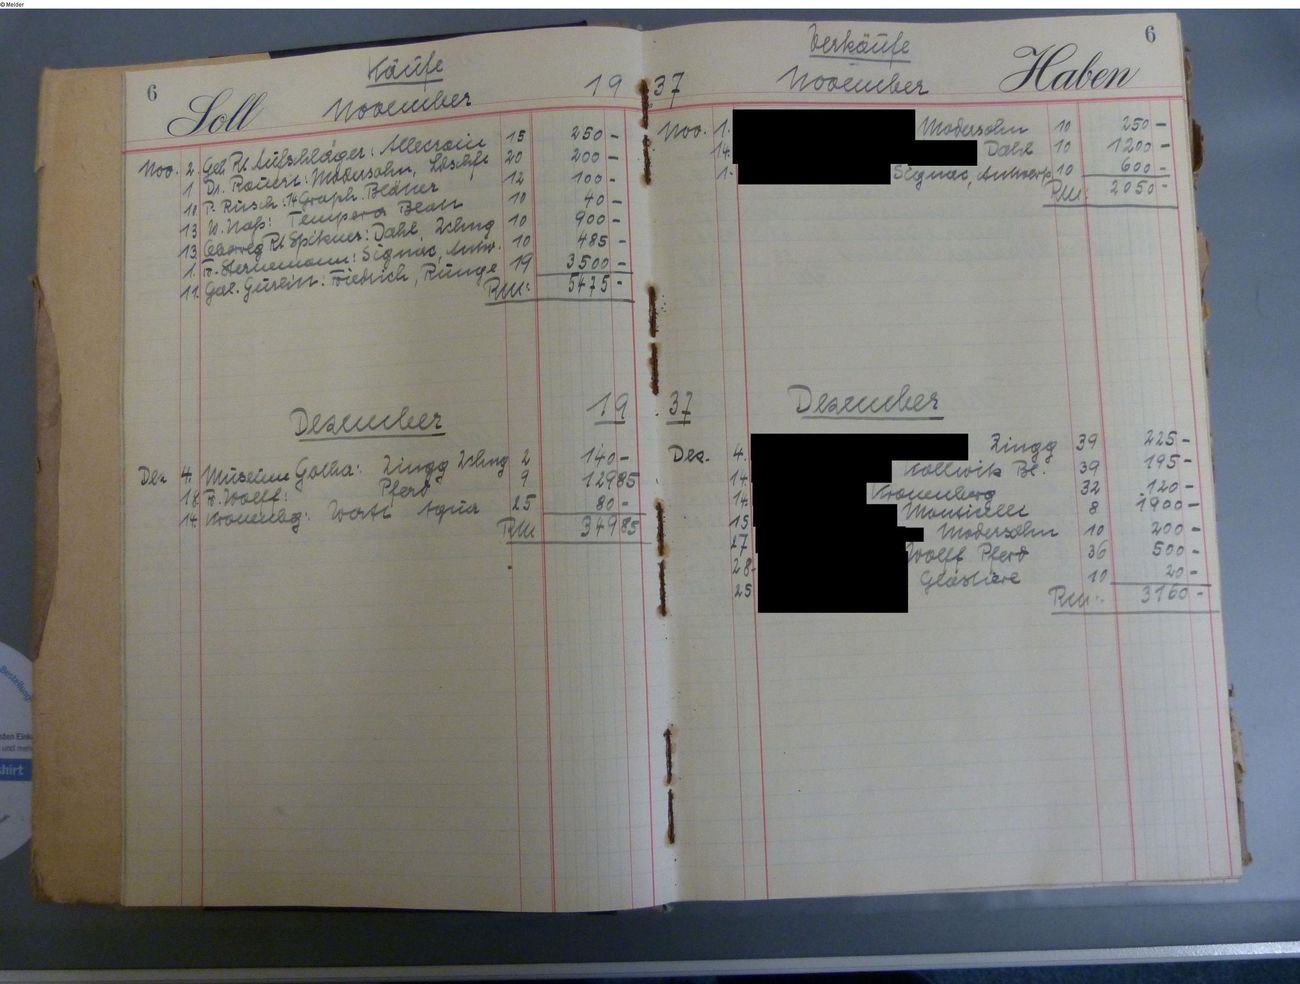 © Melder
6
Käufe
Soll
November
19
Nov. 2. Geb. Rt Aufschläger: 15 250 -
1 Dr. Rauert: Modersohn, 20 200 -
10 P. Rusch: 14 Graph. Blätter 12 100 -
13 W. Naß: Tempera 10 40 -
13. Rt Dahl, Zchng 10 900 -
1. Fr. Sternemann: Signac, Antw. 10 485 -
11. Gal. Gurlitt: Friedrich, Runge 19 3500 -
RM: 5475 -
Dezember
19
Dez 4. Museum Gotha: Zingg Zchng 2 140 -
18 F. Wolff: Pferd 9 129 85
14. Kronenbg: Aqua 25 80 -
RM 349 85
6
Verkäufe
37
November
Haben
Nov. 1. Modersohn 10 250 -
14. Dahl 10 1200 -
1. Signac, Antwerp. 10 600 -
RM: 2050 -
37
Dezember
Dez. 4. Zingg 39 225 -
14. Kollwitz Bl. 39 195 -
14. Kronenberg 32 120 -
15 Monticelli 8 1900 -
27 Modersohn 10 200 -
28 Wolff Pferd 36 500 -
25 10 20 -
RM: 3160 -
Bestellung
und meh
shirt